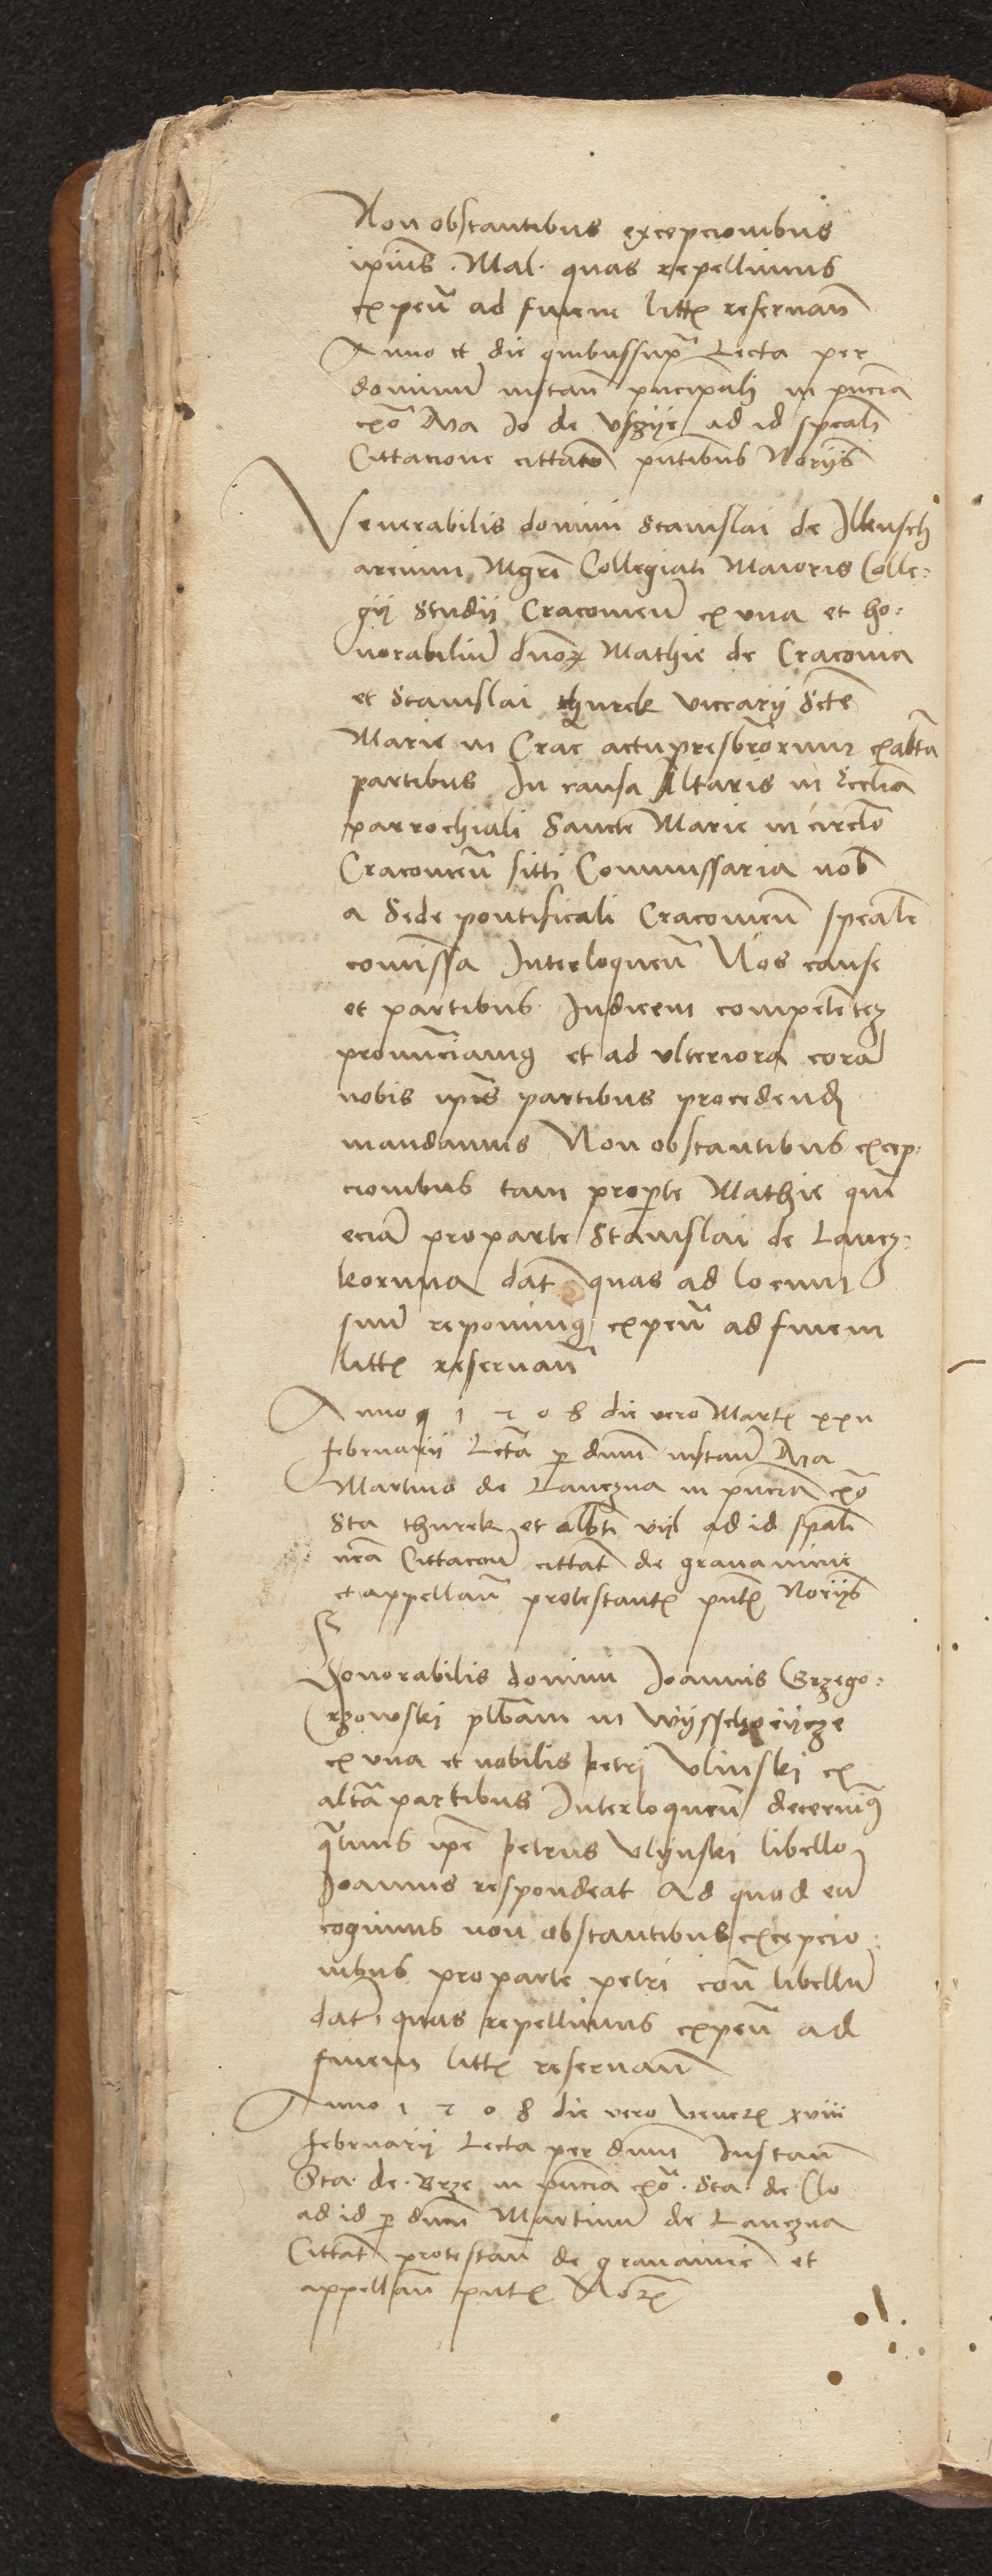 Non obstantibus excepcionibus
ipius Mal. quas repellimus
expen ad finem litt reseruan
Anno et die quibussupra Lecta per
dominum instan principali in pncia
Ma Jo de Vszije ad id speali
Cittacione cittato pntibus Norijs
Venerabilis domini Stanislai de Ilkusch
arcium Mgri Collegiati Maioris Colle:
gij Studij Cracouien ex vna et ho:
norabiliu dnorz Mathie de Cracouia
et Stanislai thurek vicearij Scte
Marie in Crac actupresbrorum exalta
partibus In causa Altaris in Ecclia
parrochiali Sancte Marie in circlo
Cracouien sitti Commissaria nob
a Sede pontificali Cracouien spealr
comissa Interloquen Nos cause
et partibus Judicem competentez
pronunciamq et ad vlteriora cora
nobis ipis partibus procedend
mandamus Non obstantibus excep:
cionibus tam proprte Mathie qm
ecia proparte Stanislai de Lancz:
koruna dat quas ad locum
suu reponimq expen ad finem
litt reseruan
Anno 1 5 0 8 die vero Mart xxii
februarij Lcta p dnum instan Ma
Martino de Lanczna in pncia
Sta thurek et albti ad id spali
nra Cittacon cittat de grauamine
et appellan protestant pnt Norijs
Honorabilis domini Joannis Grzego:
rzowski plbani in
ex vna et nobilis petri Vlinski ex
alta partibus Interloquen decernimq
qtinus ipe petrus vlijnski libello
Joannis respondeat Ad quod eu
cogimus non obstantibus excepcio:
nibus proparte petri con libellu
dat quas repellimus expen ad
finem litt reseruan
Anno 1 5 0 8 die vero vener xviii
februarij Lecta per dnum Instan
Sta. de. Brze in pncia Sta. de Clo
ad id p dnum Martinu de Lanczna
Cittat protestan de grauamie et
appellan pnt Nor